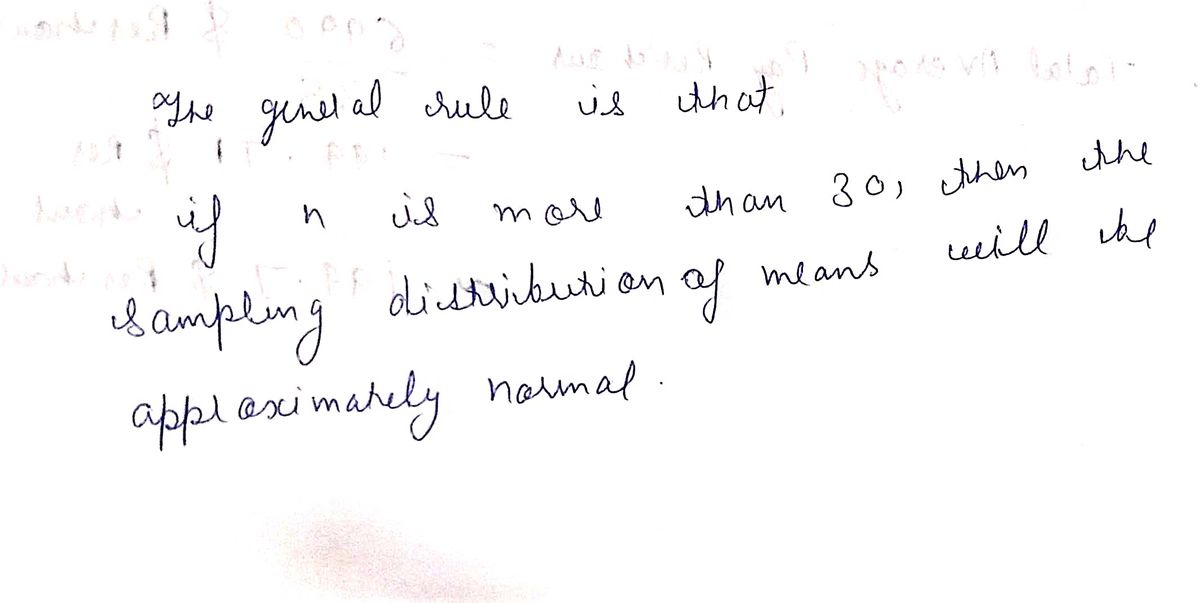 The general rule is that,
if n is more than 30, then the
sampling distribution of means will be
approximately normal.